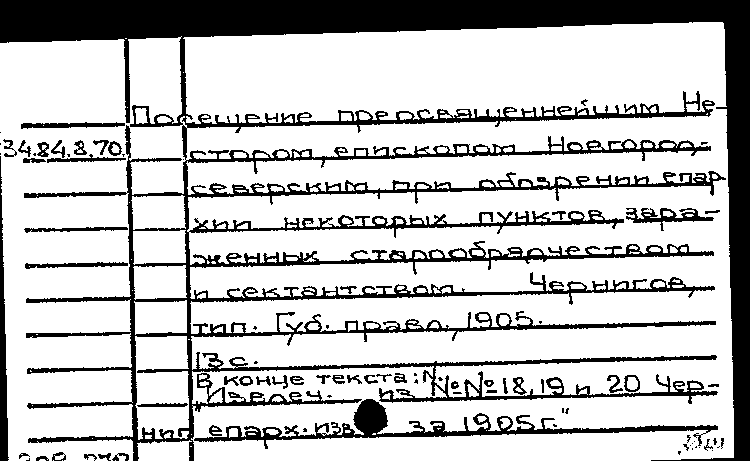 Посещение преосвященнейшим Не-
34.84.8.70. стором, епископом Новгород-
северским, при обозрении епар
хии некоторых пунктов, зара-
женных старообрядчеством
и сектантством. Чернигов,
тип. Губ. правл., 1905.
13 с.
В конце текста:
"Извлеч. из №№ 18, 19 и 20 Чер-
ниг епарх. изв за 1905г."